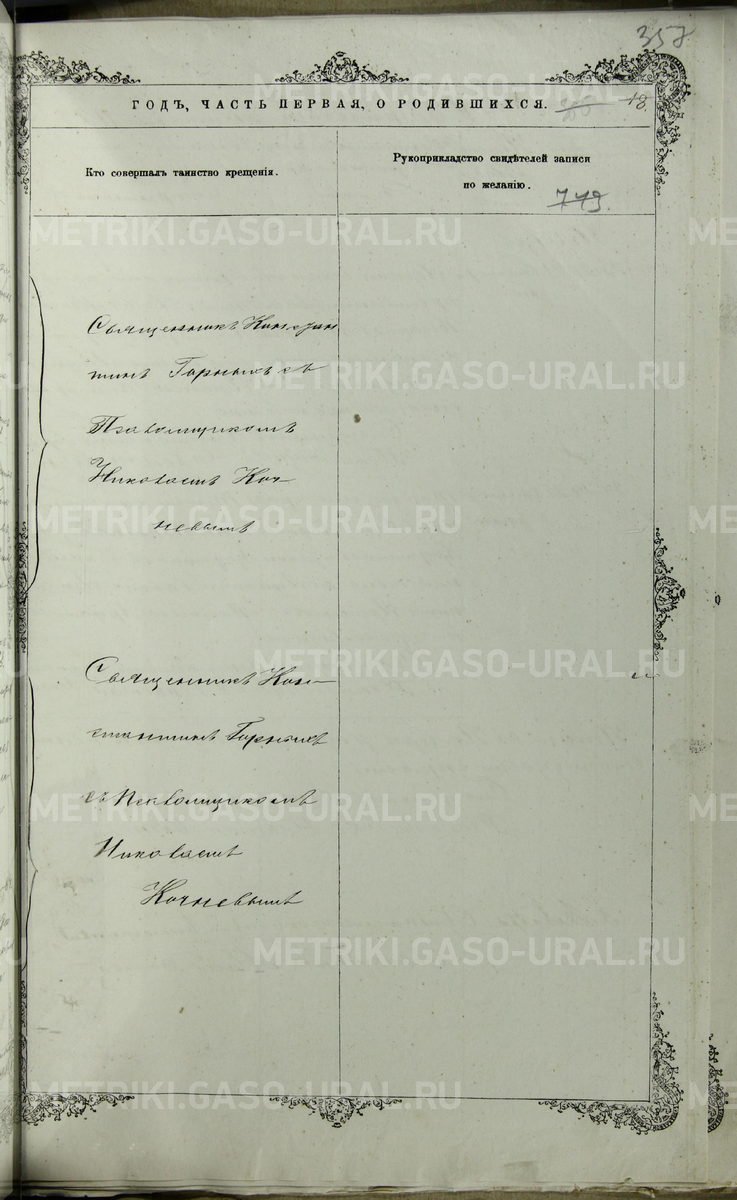 357
ГОДЪ, ЧАСТЬ ПЕРВАЯ, О РОДИВШИХСЯ.
18.
Кто совершалъ таинство крещенія.
Рукоприкладство свидѣтелей записи
по желанію.
749.
Священникъ Констан
тинъ Горныхъ съ
Псаломщикомъ
Николаемъ Коч
невымъ
Священникъ Кон-
стантинъ Горныхъ
съ Псаломщикомъ
Николаемъ
Кочневымъ
METRIKI.GASO-URAL.RU